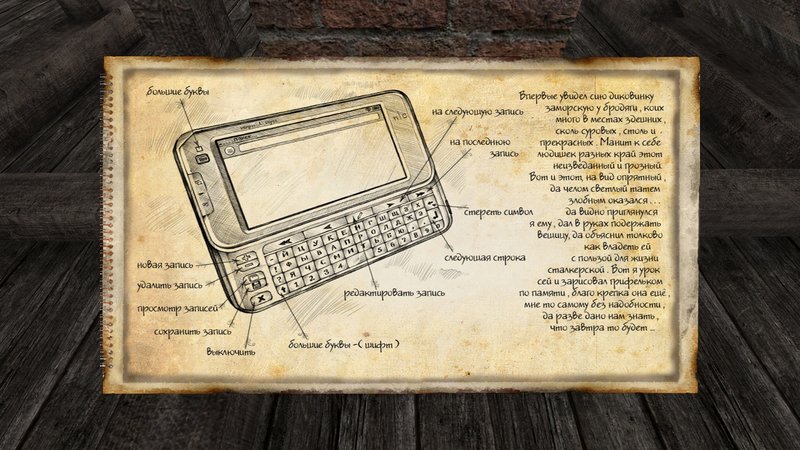 большие буквы
на следующую запись
на последнюю
запись
стереть символ
следующая строка
редактировать запись
новая запись
удалить запись
просмотр записей
сохранить запись
выключить
большие буквы -( шифт )
Впервые увидел сию диковинку
заморскую у бродяги , коих
много в местах здешних ,
сколь суровых , столь и
прекрасных . Манит к себе
людишек разных край этот
неизведанный и грозный.
Вот и этот, на вид опрятный ,
да челом светлый татем
злобным оказался . . .
да видно приглянулся
я ему , дал в руках подержать
вещицу, да объяснил толково
как владеть ей
с пользой для жизни
сталкерской . Вот я урок
сей и зарисовал грифельком
по памяти , благо крепка она ещё ,
мне то самому без надобности ,
да разве дано нам знать ,
что завтра то будет ...
Й Ц У К Е Н Г Ш Щ З Х